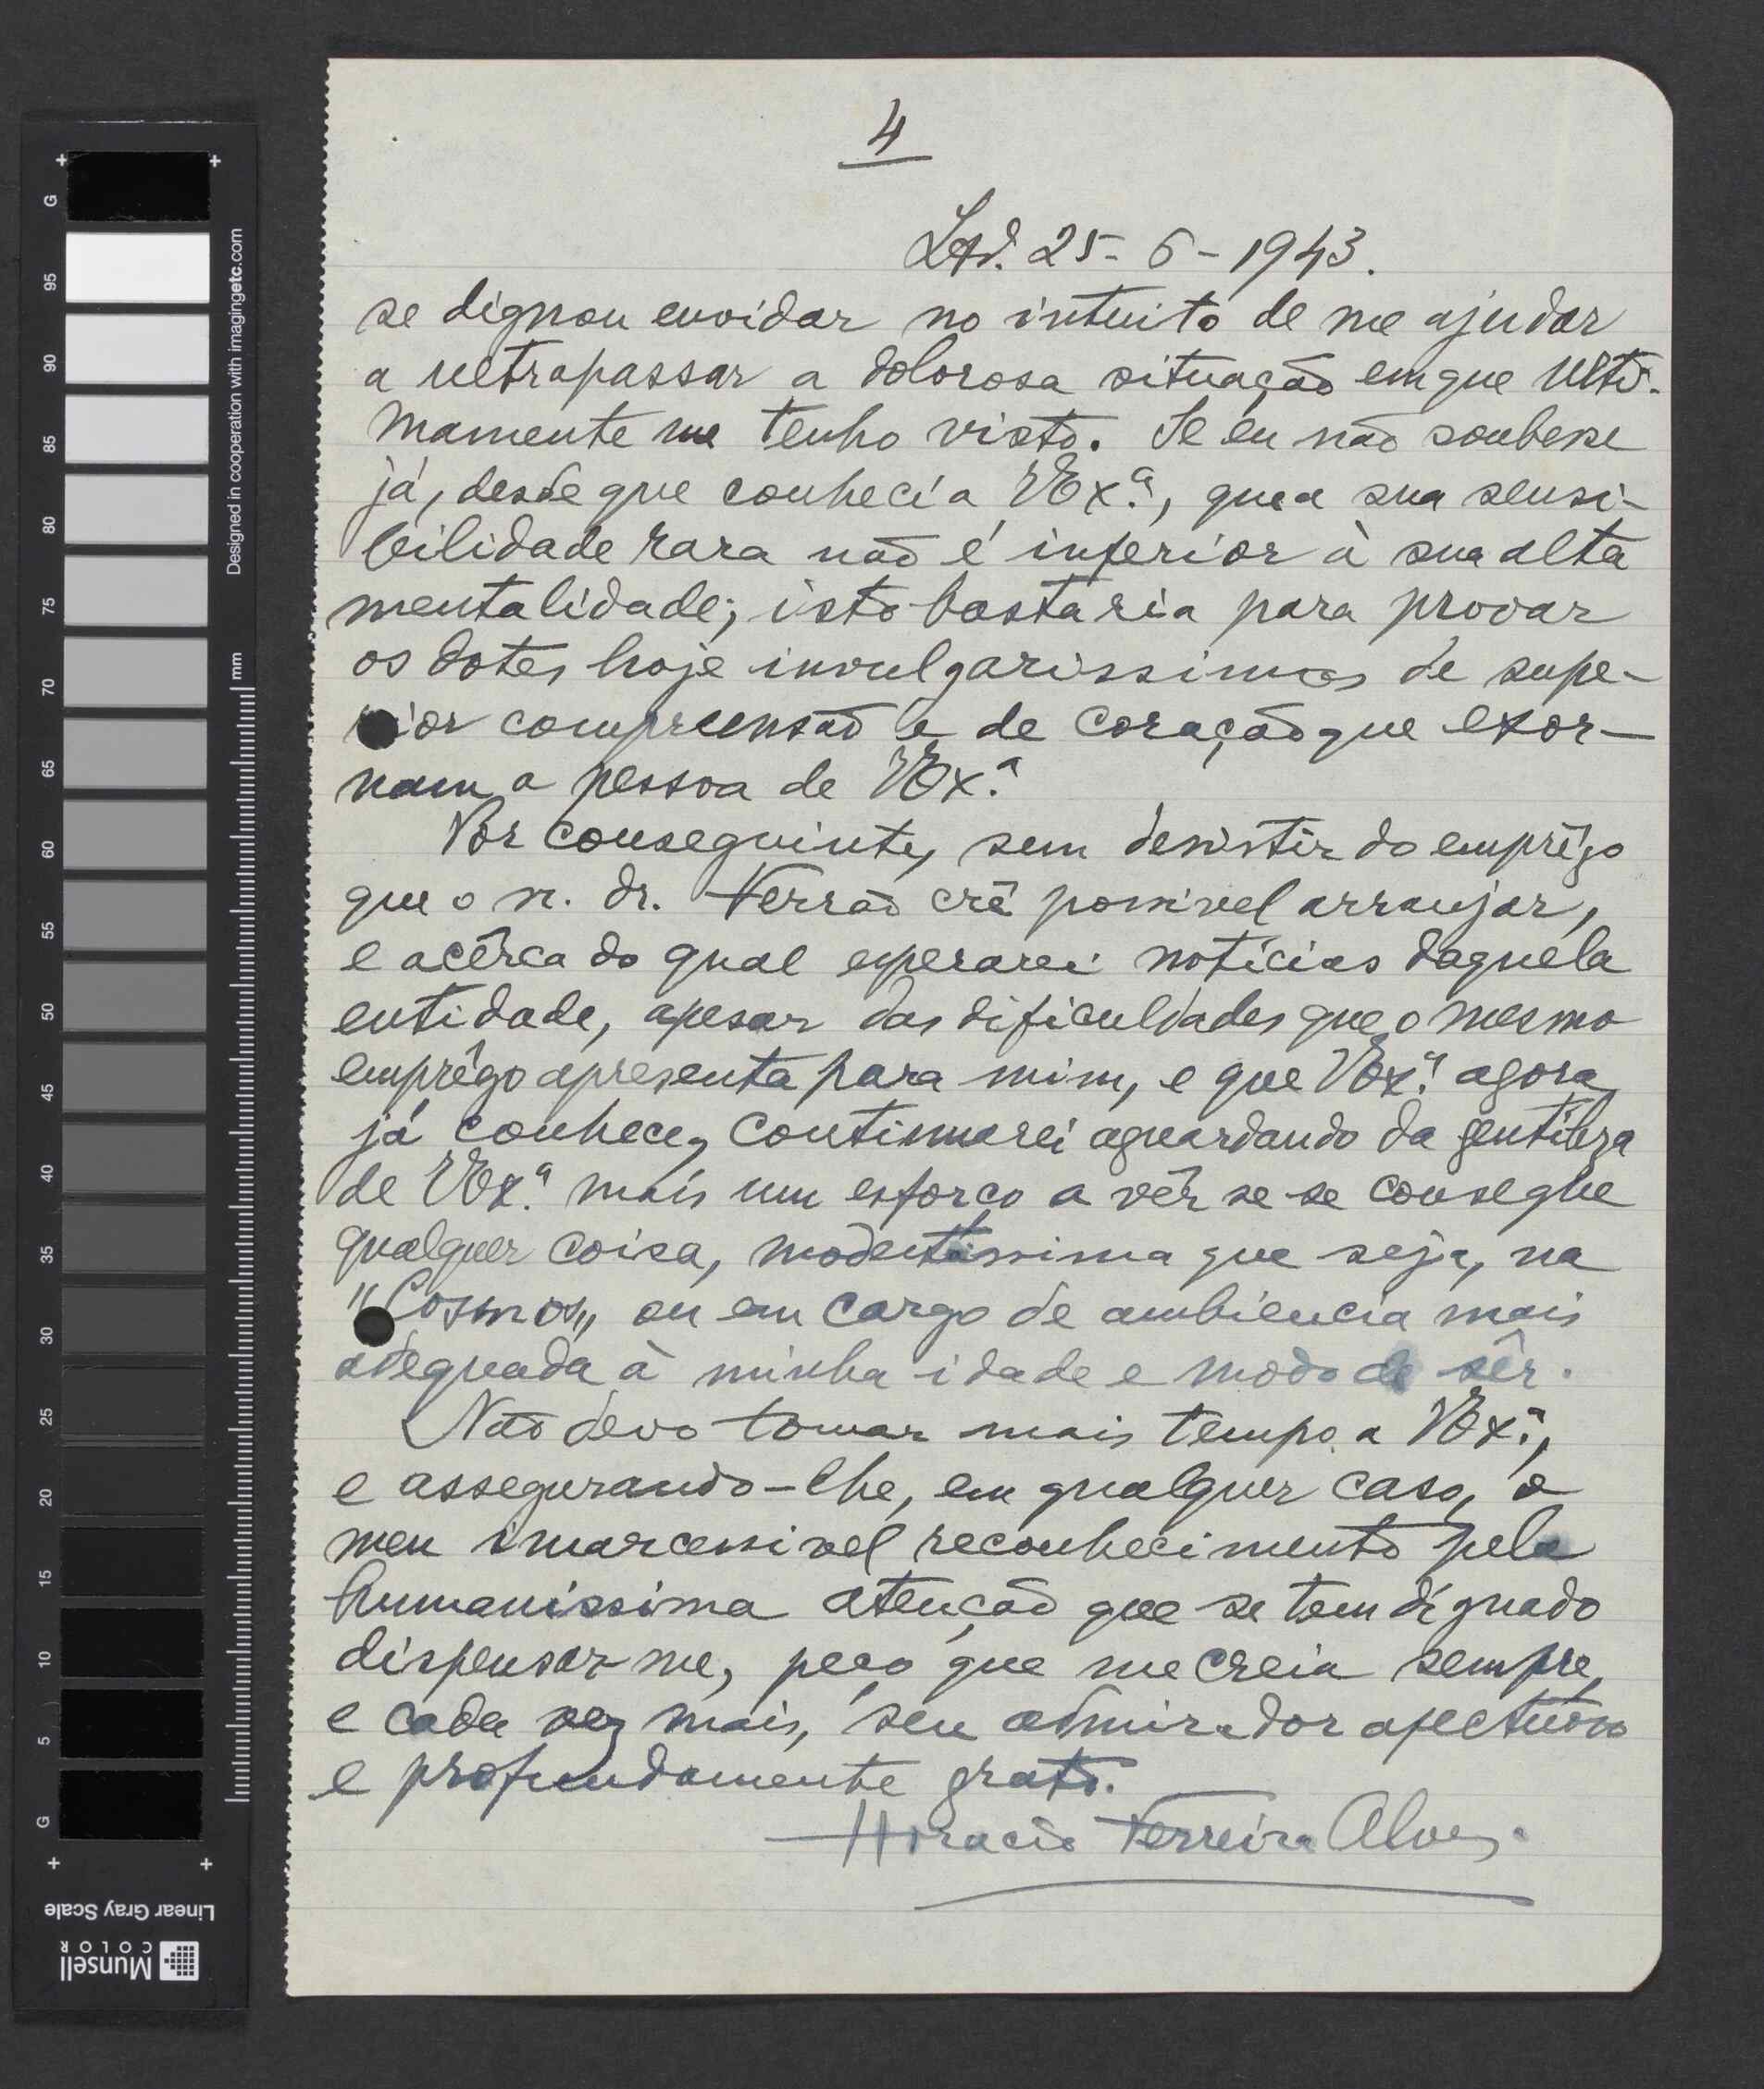 4
Lxd. 25-6-1943.
se dignou envidar no intuito de me ajudar
a ultrapassar a dolorosa situação em que ulti-
mamente me tenho visto. Se eu não soubesse
já, desde que conheci a V Ex.ª, que a sua sensi-
bilidade rara não é inferior à sua alta
mentalidade; isto bastaria para provar
os dotes hoje invulgarissimos de supe-
rior compreensão e de coração que exor-
nam a pessoa de V Ex.ª
Por conseguinte, sem desistir do emprêgo
que o sr. dr. Ferrão crê possivel arranjar,
e acêrca do qual esperarei notícias daquela
entidade, apesar das dificuldades que o mesmo
emprêgo apresenta para mim, e que V Ex.ª agora
já conhece, continuarei aguardando da gentileza
de V Ex.ª mais um esforço a vêr se se consegue
qualquer coisa, modestissima que seja, na
"Cosmos„ ou em cargo de ambiencia mais
adequada à minha idade e modo de sêr.
Não devo tomar mais tempo a V Ex.ª,
e assegurando-lhe, em qualquer caso, o
meu imarcessivel reconhecimento pela
humanissima atenção que se tem dignado
dispensar-me, peço que me creia sempre,
e cada vez mais, seu admirador afectuoso
e profundamente grato.
Horacio Ferreira Alves.
Designed in cooperation with imagingetc.com
mm
G
95
90
85
80
75
70
65
60
55
50
45
40
35
30
25
20
15
10
5
G
Linear Gray Scale
Munsell
COLOR